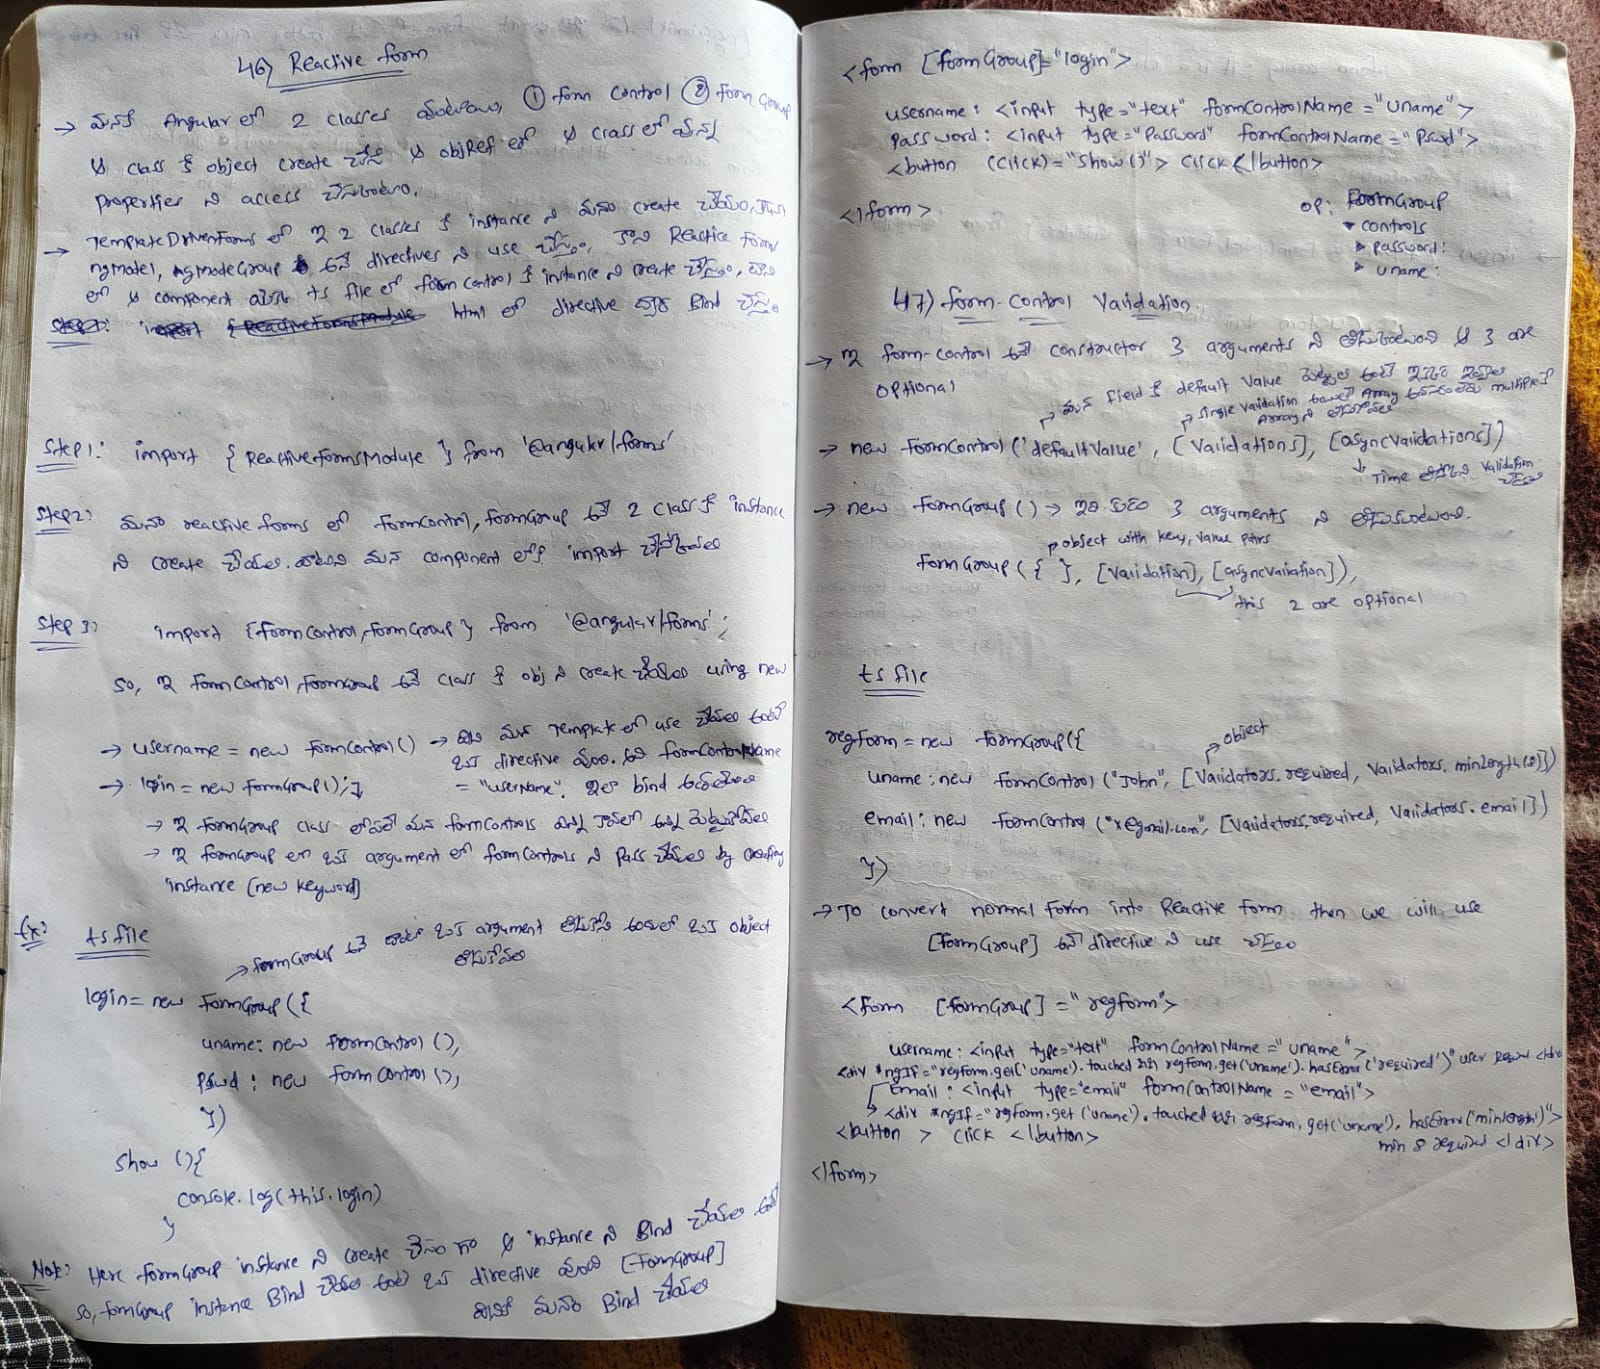 46) Reactive form
→ మనకి Angular లో 2 classes ఉంటాయి, ① form control ② form Group
ఆ class కి object create చేసి ఆ objRef లో ఆ class లో ఉన్న
properties ని access చేసుకుంటాం.
→ TemplateDrivenForms లో ఈ 2 classes కి instance ని మనం create చేయం,
ngModel, ngModeGroup అనే directives ని use చేస్తాం. కాని Reactice forms
లో ఆ component యొక్క ts file లో form control కి instance ని create చేస్తాం, దాని
Step1: import {ReactiveFormsModule html లో directive ద్వారా Bind చేస్తాం
Step1: import { ReactiveFormsModule } from '@angular/forms'
Step2: మనం reactive forms లో formControl, formGroup అనే 2 class కి instance
ని create చేయాలి. వాటిని మన component లోకి import చేసుకోవాలి
Step 3: import {formControl, formGroup } from '@angular/forms';
so, ఈ formControl, formGroup అనే class కి obj ని create చేయాలి using new
→ username = new formControl() → దీని మన Template లో use చేయాలి అంటే
ఒక directive ఉంది. అది formControlName
→ login = new formGroup(); = "userName". ఇలా bind అవుతుంది
→ ఈ formGroup class లోపలే మన formControls ఎన్ని కావాలో అన్ని పెట్టుకోవాలి
→ ఈ formGroup లో ఒక argument లో formControls ని pass చేయాలి by creating
instance (new keyword)
Ex: ts file
→ formGroup అనే దాంట్లో ఒక argument తీసుకొని అందులో ఒక object
తీసుకోవాలి
login = new formGroup ({
uname: new formControl (),
Pswd : new form control (),
})
Show () {
console.log(this.login)
}
Note: Here formGroup instance ని create చేసాం గా ఆ instance ని Bind చేయాలి అంటే
so, formGroup instance Bind చేయాలి అంటే ఒక directive ఉంది [formGroup]
దీనితో మనం Bind చేయాలి
<form [formGroup]="login">
username: <input type="text" formControlName="uname">
password: <input type="Password" formControlName="Pswd">
<button (click)="show()"> click </button>
</form>
op: FoormGroup
▾ controls
▸ password:
▸ uname:
47) form-control Validation
→ ఈ form-control అనే constructor 3 arguments ని తీసుకుంటుంది ఆ 3 are
optional
→ మన field కి default value పెట్టాలి అంటే ఇక్కడ ఇవ్వాలి
→ single validation అయితే Array అవసరం లేదు multiple కి
Array ని తీసుకోవాలి
→ new formControl ('defaultValue', [Validations], [asyncValidations])
↓ Time తీసుకొని validation
చేస్తుంది
→ new formGroup () → ఇది కూడా 3 arguments ని తీసుకుంటుంది.
→ object with key, value pairs
formGroup ({ }, [Validation], [asyncValiation]),
this 2 are optional
ts file
regForm = new formGroup({
→ object
uname: new formControl ("John", [Validators.required, Validators.minlength(8)])
email: new formControl ("x@gmail.com", [Validators.required, Validators.email])
})
→ To convert normal form into Reactive form then we will use
[formGroup] అనే directive ని use చేస్తాం
<form [formGroup] = "regform">
username: <input type="text" formControlName="uname">
<div *ngIf="regform.get('uname').touched && regform.get('uname').hasError('required')" user Required </div
Email : <input type="email" formControlName = "email">
→ <div *ngIf="regForm.get('uname').touched && regForm.get('uname').hasError('minlength')">
<button > click </button>
min 8 required </div>
</form>